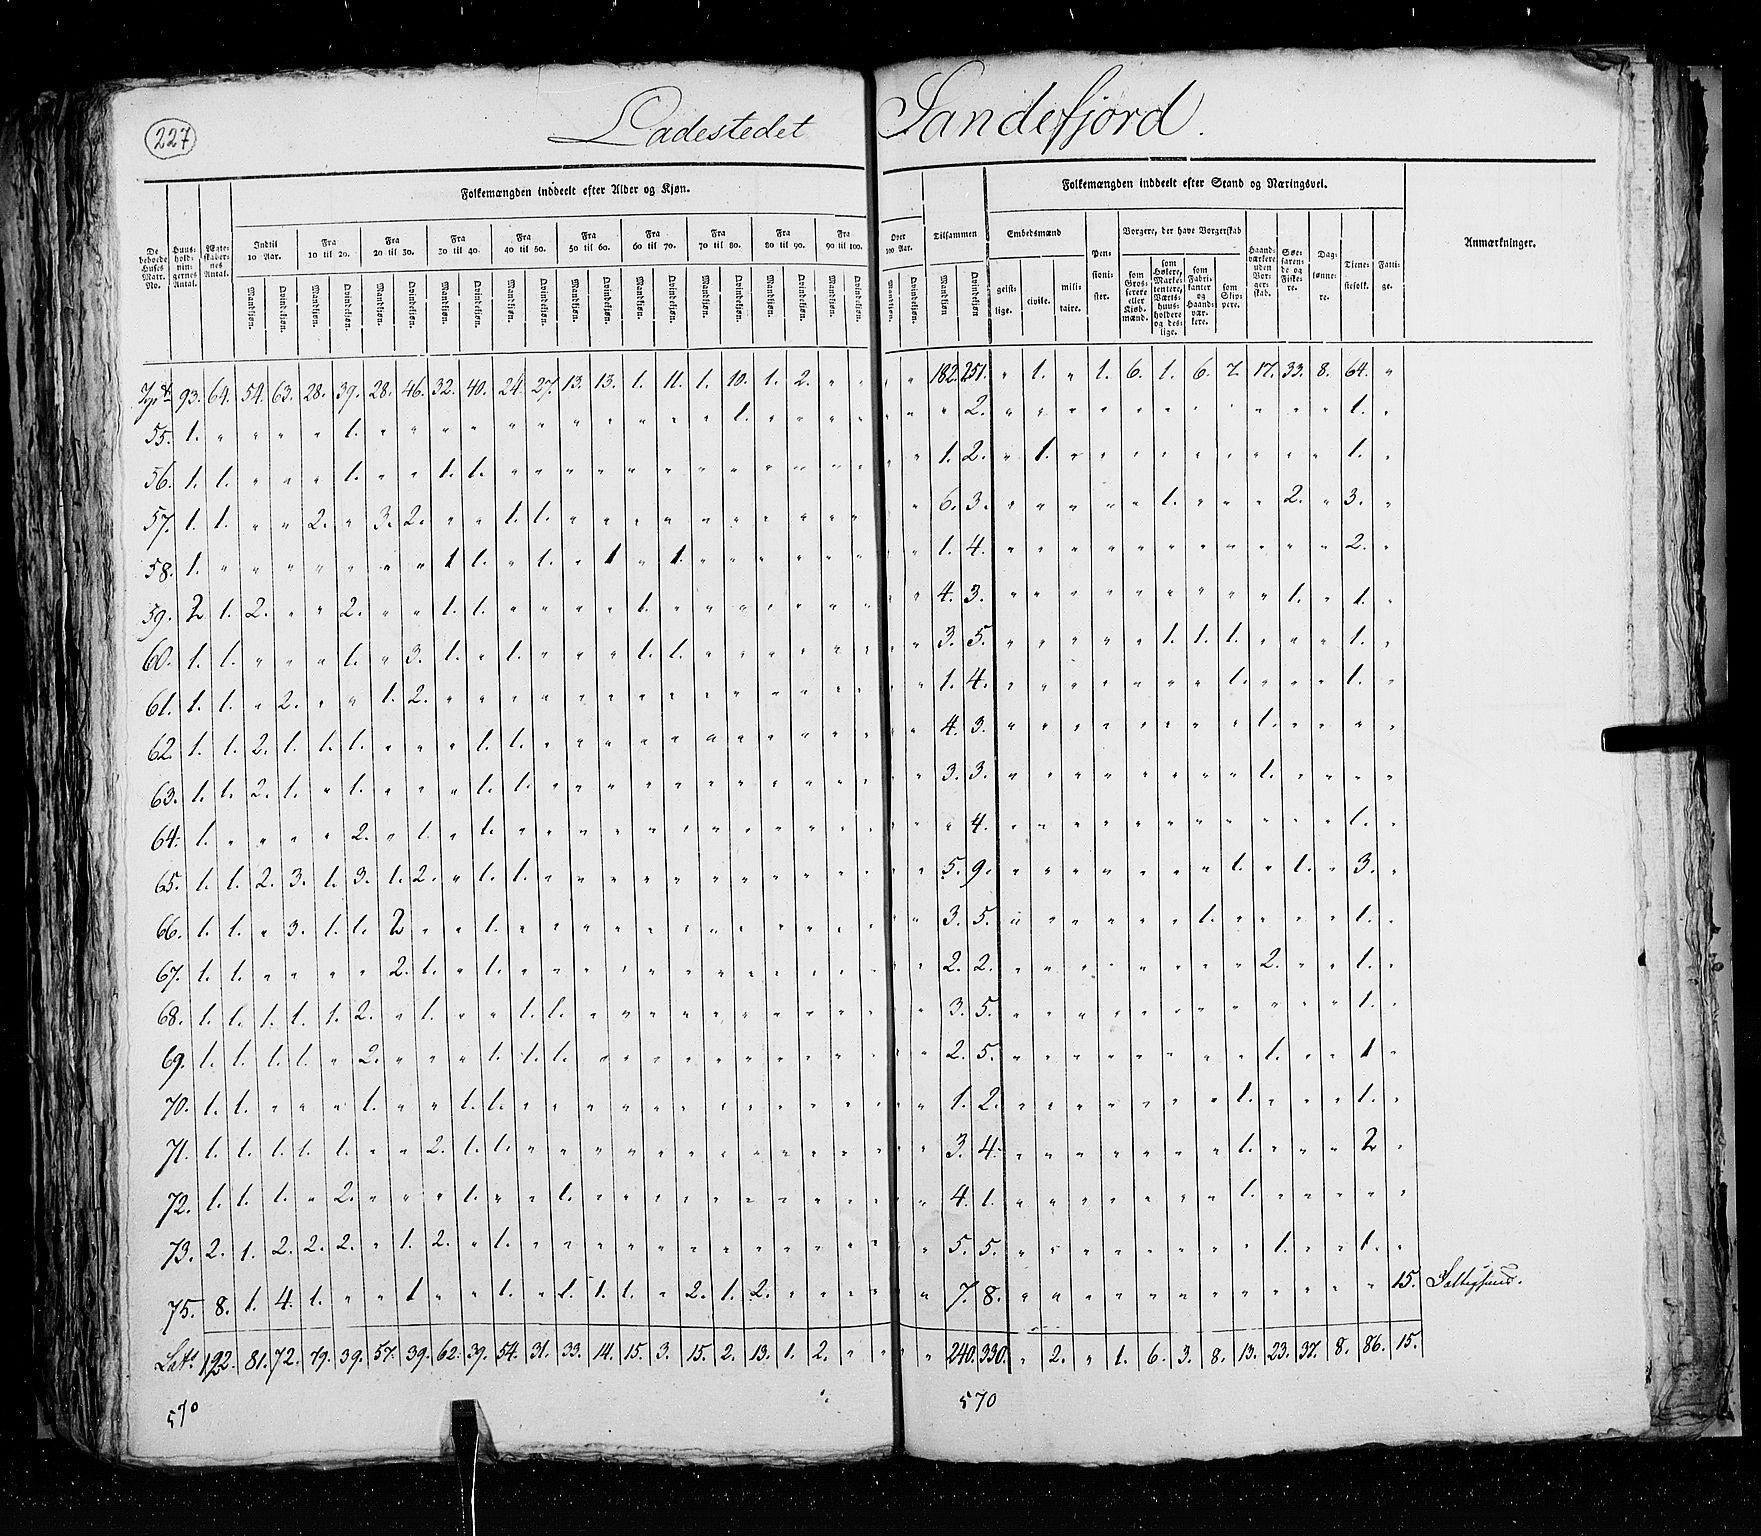 227
Ladestedet Sandefjord.
Folkemængden inddeelt efter Alder og Kjøn.
Folkemængden inddeelt efter Stand og Næringsvei.
De beboede Huses Matr. No.
Huus-hold-nin-gernes Antal.
Ægte-skaber-nes Antal.
Indtil 10 Aar.
Fra 10 til 20.
Fra 20 til 30.
Fra 30 til 40.
Fra 40 til 50.
Fra 50 til 60.
Fra 60 til 70.
Fra 70 til 80.
Fra 80 til 90.
Fra 90 til 100.
Over 100 Aar.
Tilsammen
Embedsmænd
Pen-sioni-ster.
Borgere, der have Borgerskab
Haand-værkere uden Bor-ger-skab.
Søe-faren-de og Fiske-re.
Dag-lønne-re.
Tjene-stefolk.
Fatti-ge.
Anmærkninger.
Mandkjøn. Qvindekjøn. Mandkjøn. Qvindekjøn. Mandkjøn. Qvindekjøn. Mandkjøn. Qvindekjøn. Mandkjøn. Qvindekjøn. Mandkjøn. Qvindekjøn. Mandkjøn. Qvindekjøn. Mandkjøn. Qvindekjøn. Mandkjøn. Qvindekjøn. Mandkjøn. Qvindekjøn. Mandkjøn. Qvindekjøn. Mandkjøn Qvindekjøn
geist-lige. civile. mili-taire.
som Gros-serere eller Kjøb-mænd.
som Høkere, Marke-tentere, Værts-huus-holdere og des-lige.
som Fabri-kanter og Haand-vær-kere.
som Skip-pere.
93. 64. 54. 63. 28. 39. 28. 46. 32. 40. 24. 27. 13. 13. 1. 11. 1. 10. 1. 2. " " " " 182. 251. " 1. " 1. 6. 1. 6. 7. 17. 33. 8. 64. "
55. 1. " " " " " 1. " " " " " " " " " " " 1. " " " " " " " 2. " " " " " " " " " " " 1. "
56. 1. 1. " " " 1. " " 1. 1. " " " " " " " " " " " " " " 1. 2. " 1. " " " " " " " " " 1. "
57. 1. 1. " " 2. " 3. 2. " " 1. 1. " " " " " " " " " " " " 6. 3. " " " " " 1. " " " 2. " 3. "
58. 1. " " " " " " " 1 1. " 1. " 1 " 1. " " " " " " " " 1. 4. " " " " " " " " " " " 2. "
59. 2 1. 2. " " 2. " " 1. 1. " " " " 1. " " " " " " " " " 4. 3. " " " " " " " " " 1. " 1. "
60. 1. 1. " " " 1. " 3. 1. " 1. " " " 1. 1. " " " " " " " " 3. 5. " " " " " 1. 1. 1. " " " 1. "
61. 1. 1. " 2. " " 1. 2. " " " " " " " " " " " " " " " " 1. 4. " " " " " " " 1. " " " 1. "
62. 1. 1. 2. 1. 1. 1. " " " 1. 1. " " " " " " " " " " " " " 4. 3. " " " " " " " " 1. " " " "
63. 1. 1. 2. 1. " 1. " " " 1. 1. " " " " " " " " " " " " " 3. 3. " " " " " " " " 1. " " " "
64. 1. " " " " 2. " 1. " 1. " " " " " " " " " " " " " " " 4. " " " " " " " " " " " 1. "
65. 1. 1. 2. 3. 1. 3. 1. 2. " 1. 1. " " " " " " " " " " " " " 5. 9. " " " " " " " 1. " 1. " 3. "
66. 1. 1. " 3. 1. 1. 2 " " 1. " " " " " " " " " " " " " " 3. 5. " " " " " " 1. " " " " 1. "
67. 1. 1. " " " " 2. 1. " 1. " " " " " " " " " " " " " " 2. 2. " " " " " " " " 2. " " 1. "
68. 1. 1. 1. 1. 1. 2. " 1. " " 1. 1. " " " " " " " " " " " " 3. 5. " " " " " " " " " " " 1. "
69. 1. 1. 1. 1. " 2. " " " 1. 1. 1. " " " " " " " " " " " " 2. 5. " " " " " " " " 1. " " 1 "
70. 1. 1. " " " 1. " " 1. 1. " " " " " " " " " " " " " " 1. 2. " " " " " " " 1. " " " 1. "
71. 1. 1. 1. 1. 1. " " 2. 1. 1. " " " " " " " " " " " " " " 3. 4. " " " " " " " 1. " " " 2 "
72. 1. 1. 1. " 2. " " " 1. " " 1. " " " " " " " " " " " " 4. 1. " " " " " " " 1. " " " " "
73. 2. 1. 2. 2. 2. " 1. 2. " 1. " " " " " " " " " " " " " " 5. 5. " " " " " " " " 1. " " 1. "
75. 8. 1. 4. 1. " " 1 " " 1. " 1. 1. 1. " 2. 1. 2. " " " " " " 7. 8. " " " " " " " " " " " " 15. Fattighuus.
Lat. 122. 81. 72. 79. 39. 57. 39. 62. 39. 54. 31. 33. 14. 15. 3. 15. 2. 13. 1. 2. " " " " 240. 330. " 2. " 1. 6. 3. 8. 13. 23. 37. 8. 86. 15.
570
570